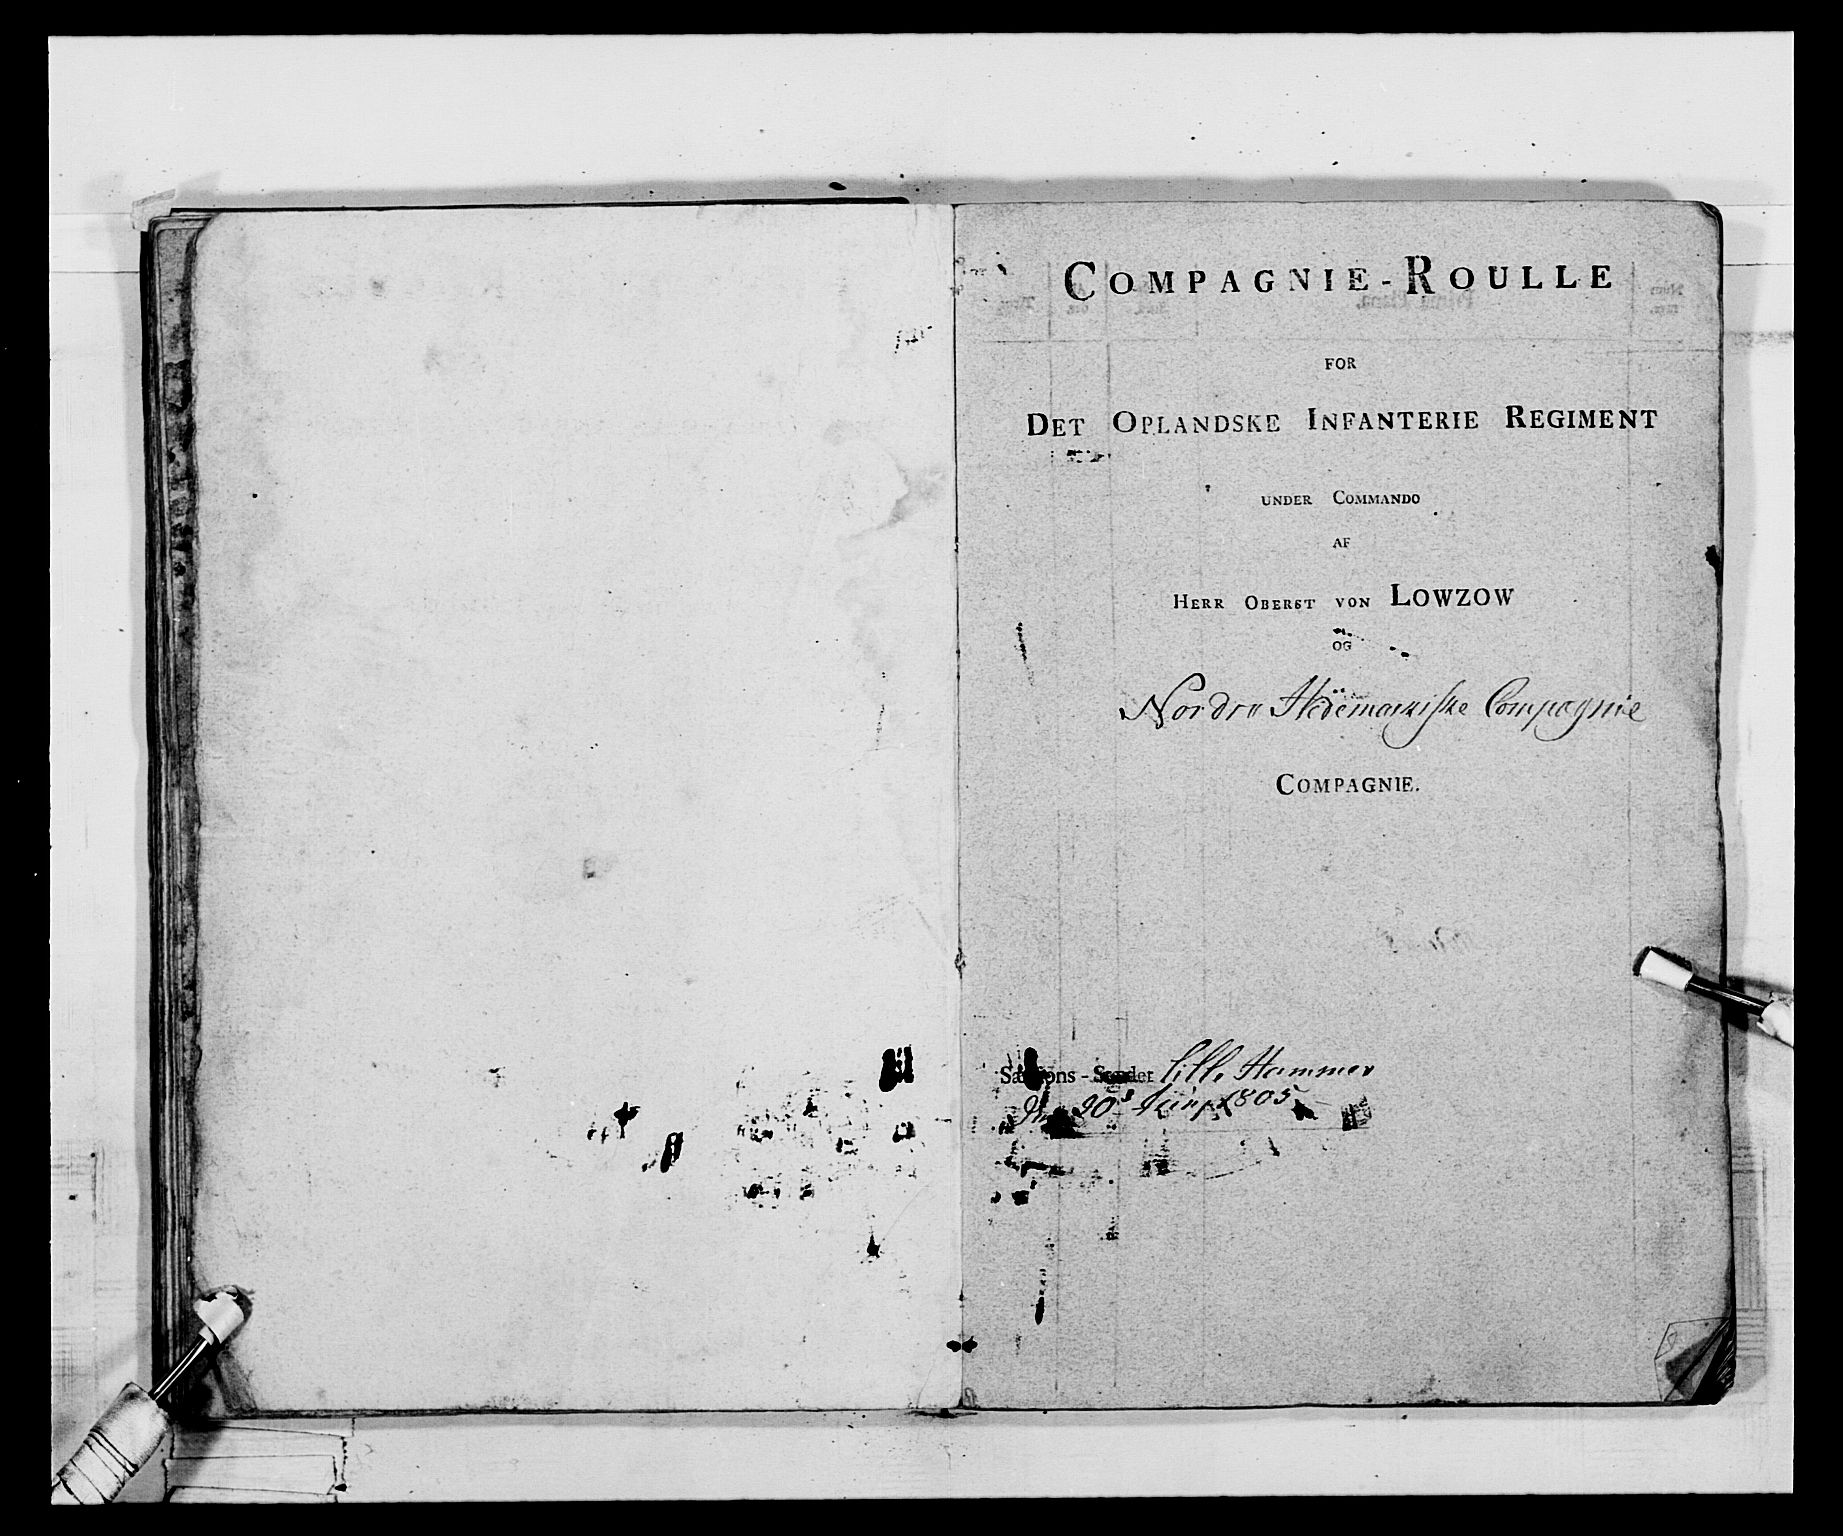 COMPAGNIE-ROULLE
FOR
DET OPLANDSKE INFANTERIE REGIMENT
UNDER COMMANDO
AF
HERR OBERST VON LOWZOW
OG
Nordre Hedemarkiske Compagnie
COMPAGNIE.
Sessions-Stedet Lille Hammer
1805